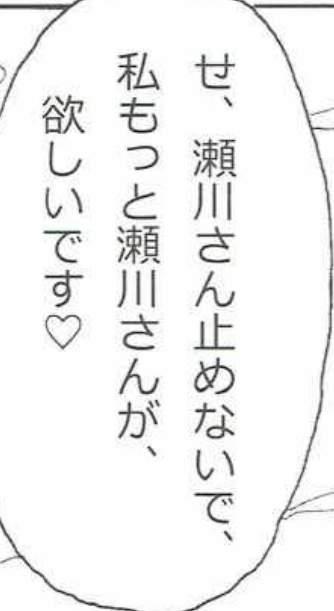 せ、瀬川さん止めないで、
私もっと瀬川さんが、
欲しいです♡